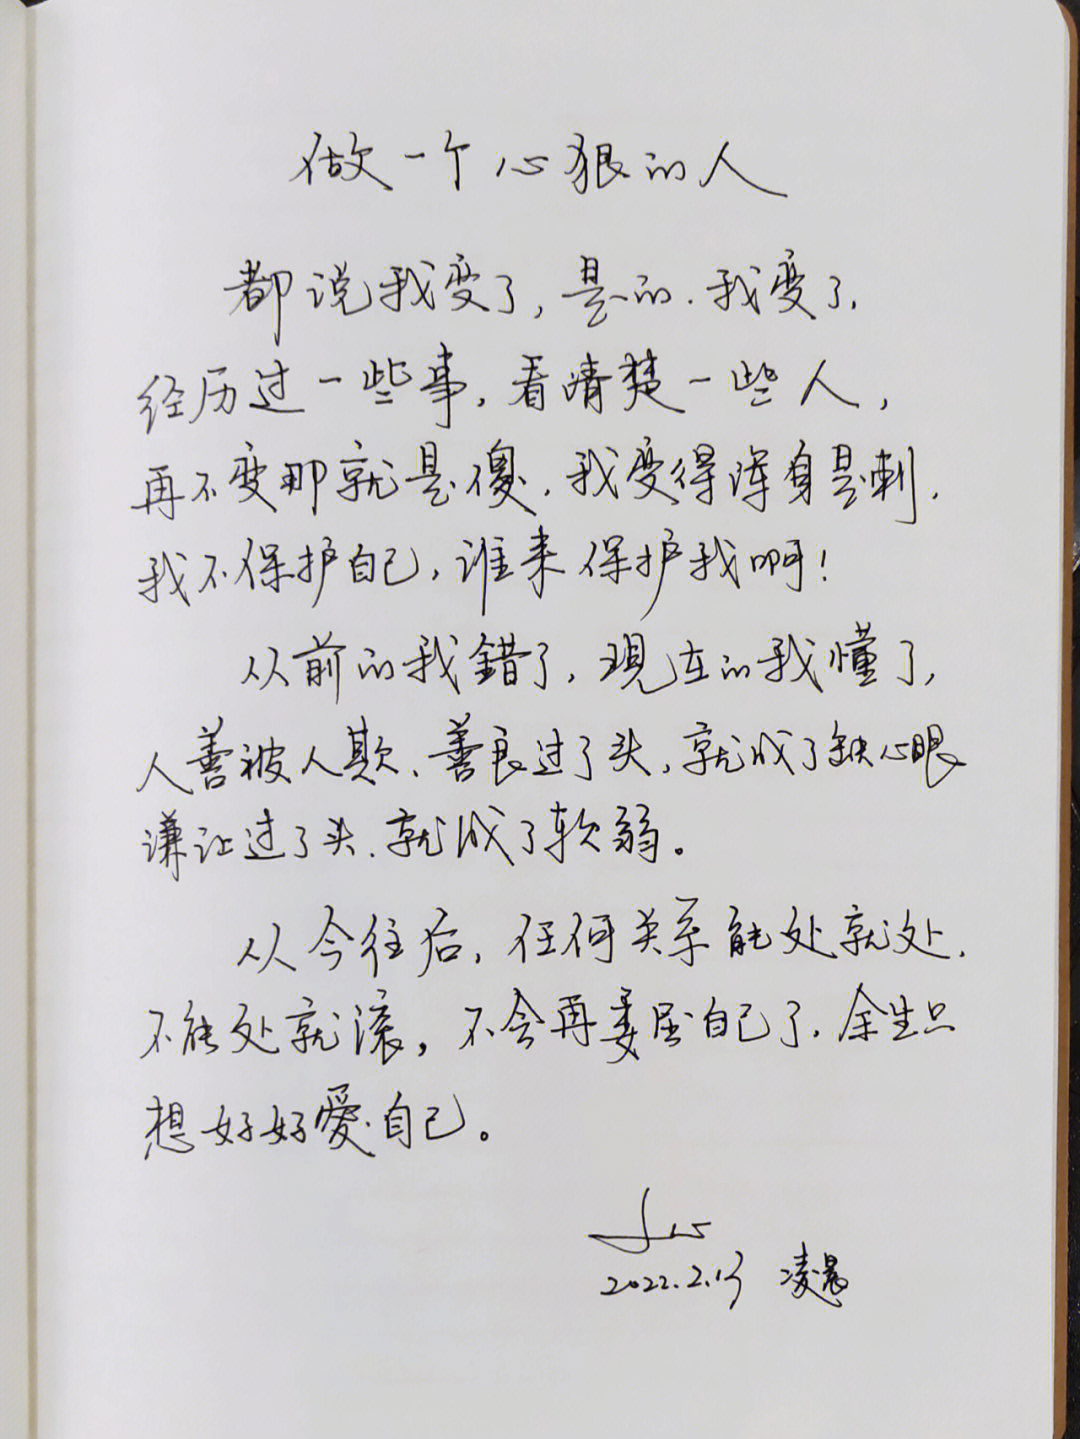 做一个心狠的人
都说我变了,是的.我变了,
经历过一些事,看清楚一些人,
再不变那就是傻,我变得浑身是刺,
我不保护自己,谁来保护我啊!
从前的我錯了,現在的我懂了,
人善被人欺、善良过了头,就成了缺心眼
谦让过了头、就成了软弱。
从今往后,任何关系能处就处,
不能处就滚,不会再委屈自己了,余生只
想好好愛自己。
2022.2.13 凌晨